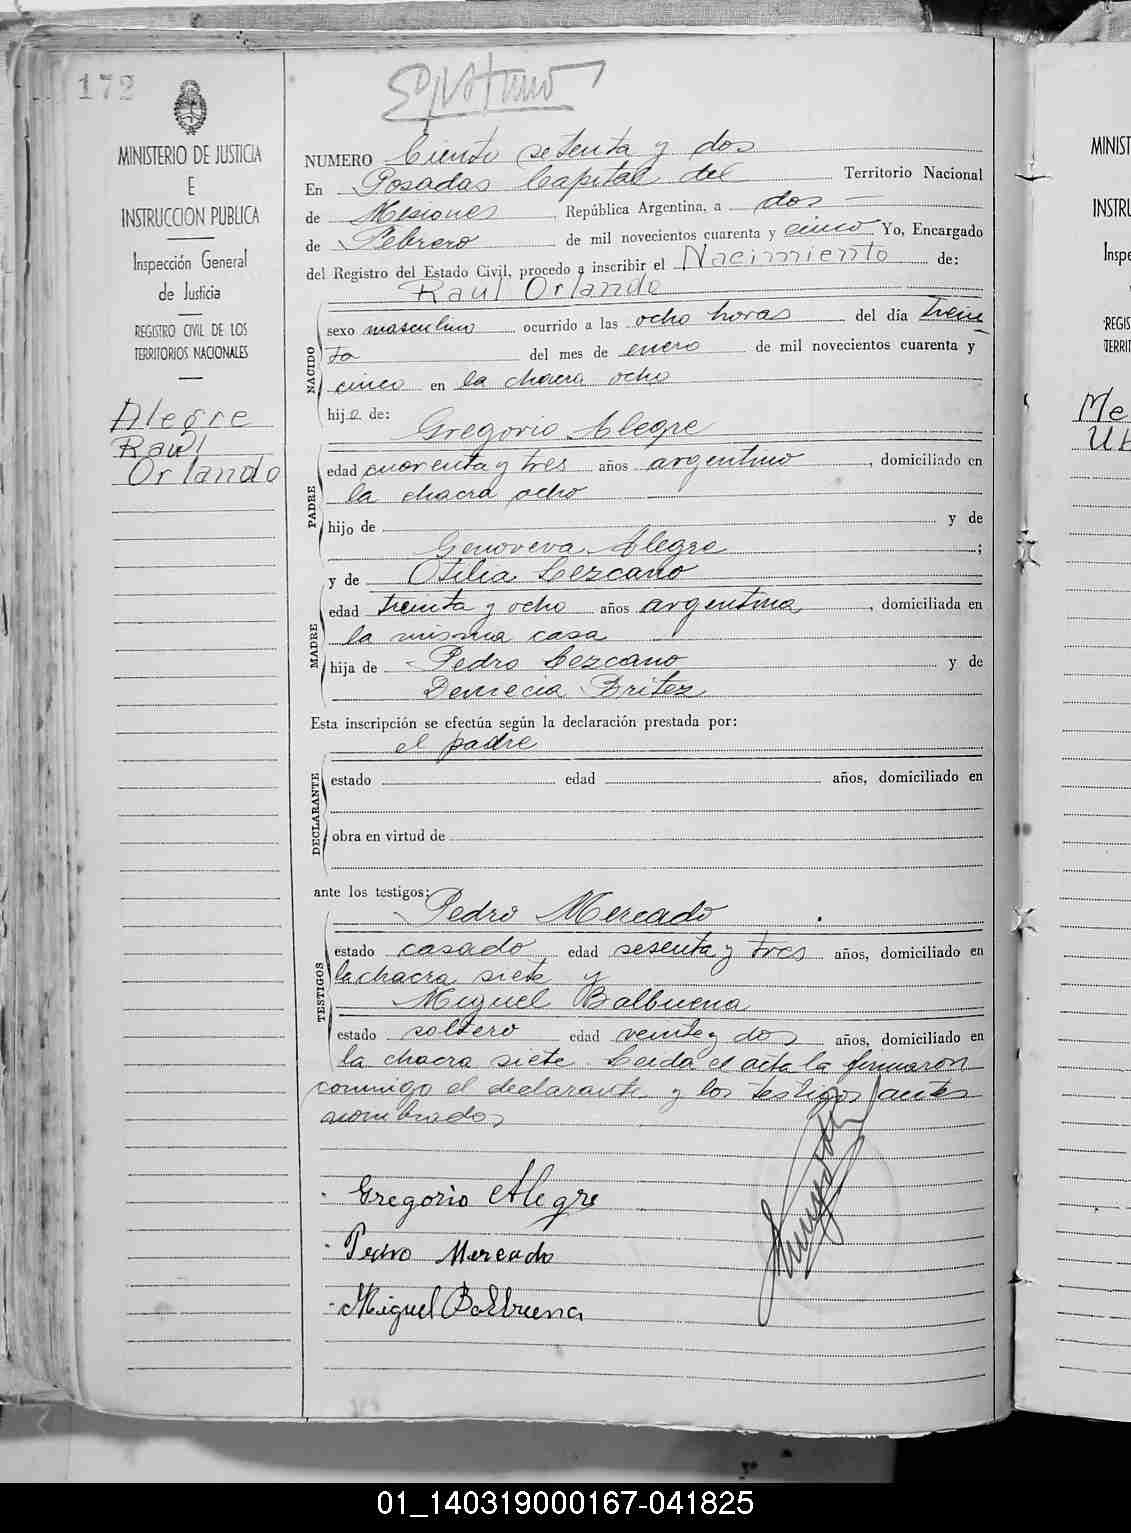 172
MINISTERIO DE JUSTICIA
E
INSTRUCCION PUBLICA
Inspección General
de Justicia
REGISTRO CIVIL DE LOS
TERRITORIOS NACIONALES
Alegre
Raúl
Orlando
NUMERO Ciento setenta y dos
En Posadas Capital del Territorio Nacional
de Misiones, República Argentina, a dos
de Febrero de mil novecientos cuarenta y cinco Yo, Encargado
del Registro del Estado Civil, procedo a inscribir el Nacimiento de:
Raul Orlando
NACIDO
sexo masculino ocurrido a las ocho horas del día trein
ta del mes de enero de mil novecientos cuarenta y
cinco en la chacra ocho
hijo de:
Gregorio Alegre
PADRE
edad cuarenta y tres años argentino, domiciliado en
la chacra ocho
hijo de y de
Genoveva Alegre ;
y de Otilia Lezcano
MADRE
edad treinta y ocho años argentina, domiciliada en
la misma casa
hija de Pedro Lezcano y de
Demecia Britez
Esta inscripción se efectúa según la declaración prestada por:
el padre
DECLARANTE
estado edad años, domiciliado en
obra en virtud de
ante los testigos:
Pedro Mercado
TESTIGOS
estado casado edad sesenta y tres años, domiciliado en
la chacra siete y
Miguel Balbuena
estado soltero edad veinte y dos años, domiciliado en
la chacra siete. Leida el acta la firmaron
conmigo el declarante y los testigos antes
nombrados
Gregorio Alegre
Pedro Mercado
Miguel Balbuena
MINIST
INSTRU
Inspe
REGIS
TERRIT
Me
01_140319000167-041825